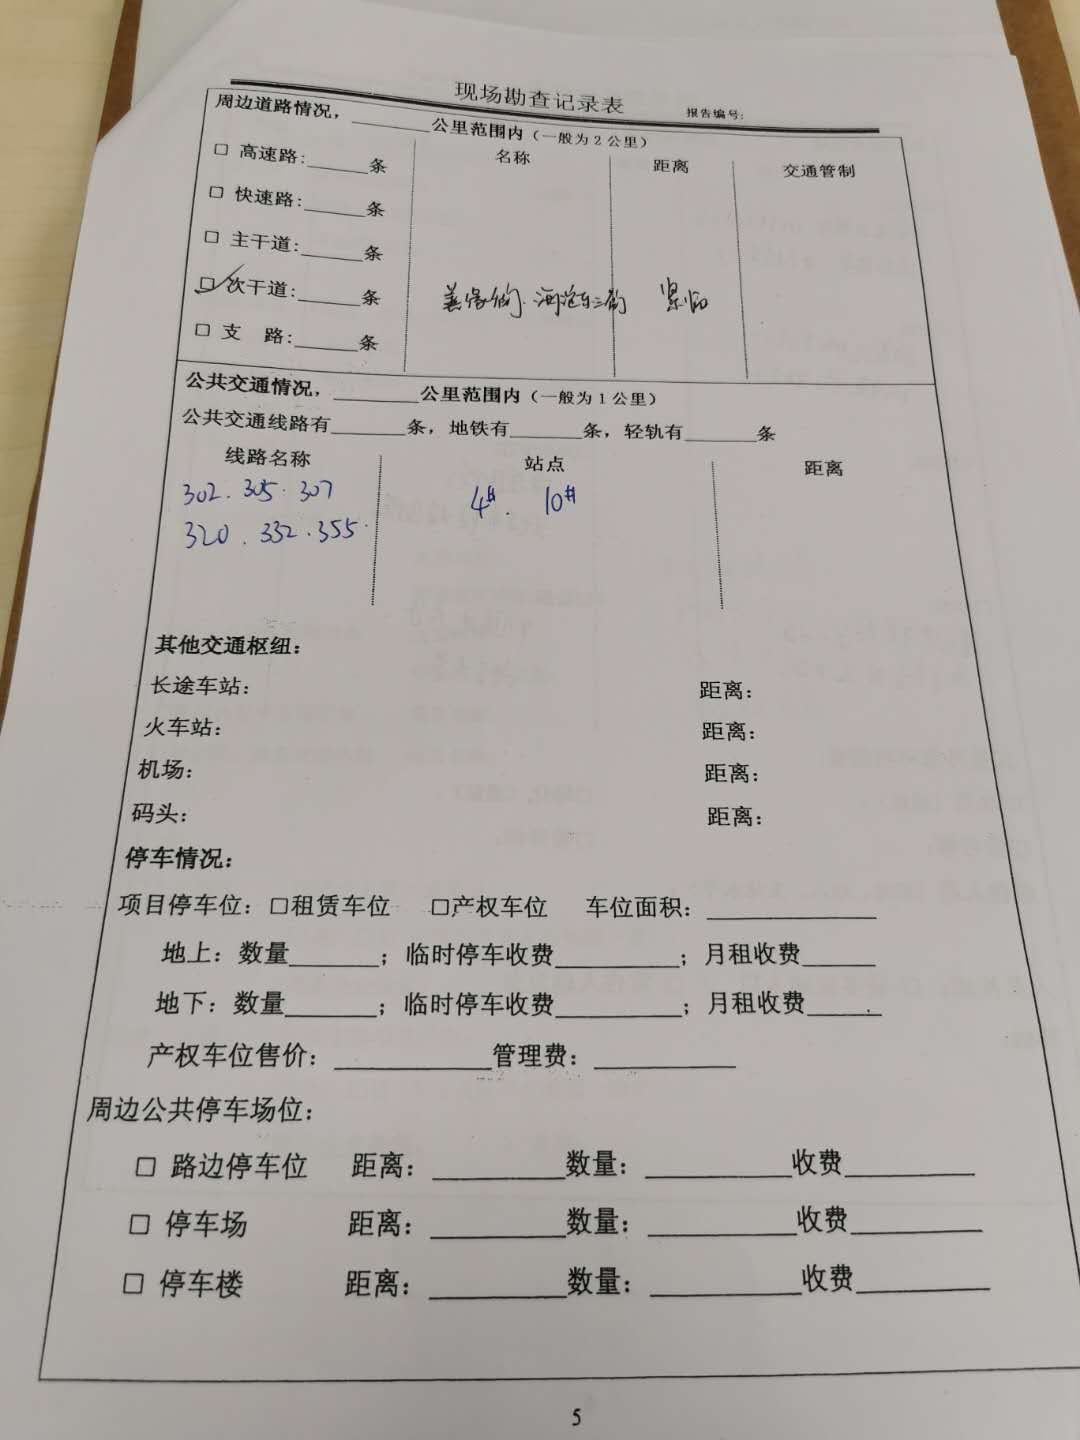 现场勘查记录表 报告编号:
周边道路情况，________公里范围内（一般为2公里）
名称 距离 交通管制
□ 高速路:______条
□ 快速路:______条
□ 主干道:______条
☑ 次干道:______条 紧临
□ 支 路:______条
公共交通情况，________公里范围内（一般为1公里）
公共交通线路有_______条，地铁有_______条，轻轨有_______条
线路名称 站点 距离
302. 305. 307 4# . 10#
320 . 332 . 355.
其他交通枢纽：
长途车站： 距离：
火车站： 距离：
机场： 距离：
码头： 距离：
停车情况：
项目停车位：□租赁车位 □产权车位 车位面积：______________
地上：数量_______；临时停车收费__________；月租收费______
地下：数量_______；临时停车收费__________；月租收费______
产权车位售价：____________管理费：___________
周边公共停车场位：
□ 路边停车位 距离：__________数量：___________收费__________
□ 停车场 距离：__________数量：___________收费__________
□ 停车楼 距离：__________数量：___________收费__________
5